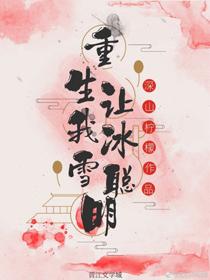 重生让我冰雪聪明
深山柠檬作品
晋江文学城